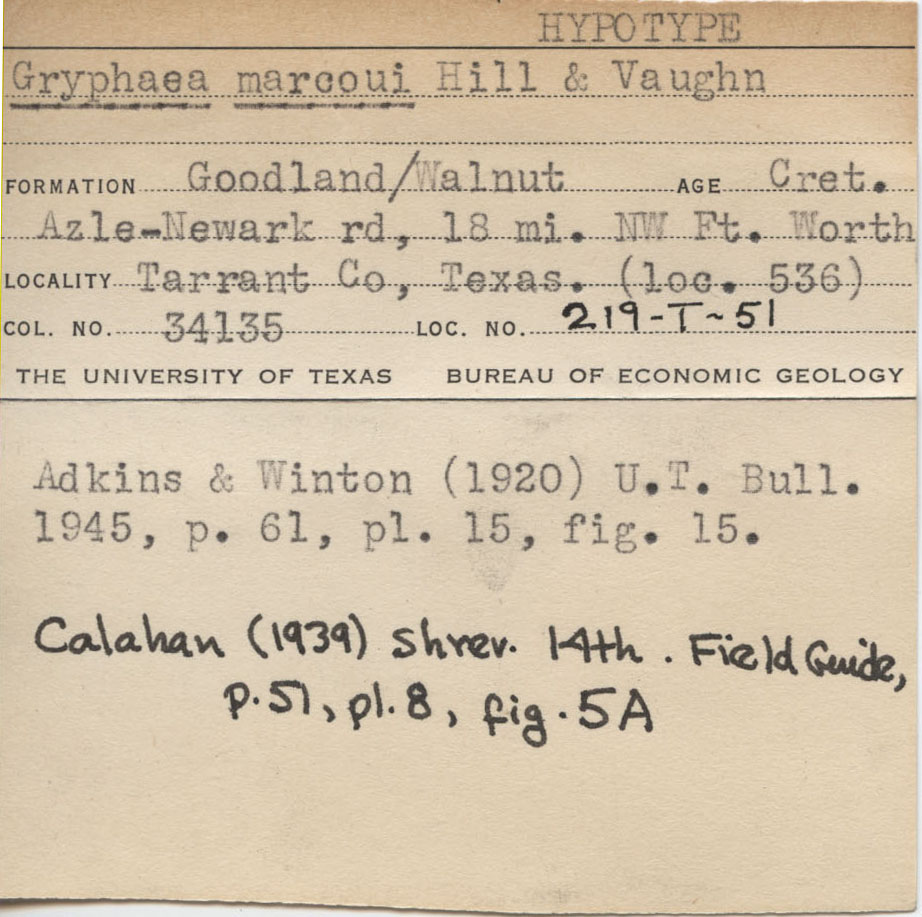 HYPOTYPE
Gryphaea marcoui Hill & Vaughn
FORMATION Goodland/Walnut AGE Cret.
Azle-Newark rd, 18 mi. NW Ft. Worth
LOCALITY Tarrant Co, Texas. (loc. 536)
COL. NO. 34135 LOC. NO. 219-T-51
THE UNIVERSITY OF TEXAS BUREAU OF ECONOMIC GEOLOGY
Adkins & Winton (1920) U.T. Bull.
1945, p. 61, pl. 15, fig. 15.
Calahan (1939) Shrev. 14th. Field Guide,
p.51, pl.8, fig.5A